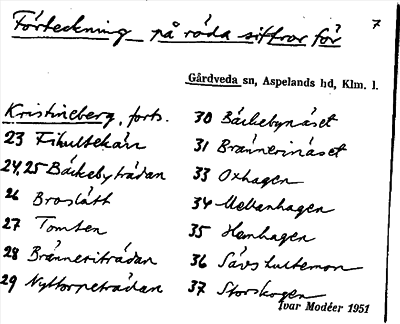 Förteckning på röda siffror för
7
Gårdveda sn, Aspelands hd, Klm. l.
Kristineberg, forts.
23 Fikultekärr
24,25 Bäckebyträdan
26 Broslätt
27 Tomten
28 Bränneriträdan
29 Nyttorpeträdan
30 Bäckebynäset
31 Brännerinäset
33 Oxhagen
34 Mellanhagen
35 Hemhagen
36 Sävshultemon
37 Storskogen
Ivar Modéer 1951